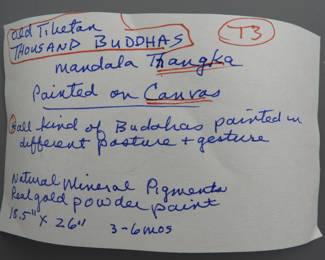 old Tibetan
THOUSAND BUDDHAS
T3
mandala Thangka
Painted on Canvas
all kind of Buddhas painted in
different posture + gesture
Natural Mineral Pigments
Real gold powder paint
18.5" x 26" 3-6 mos